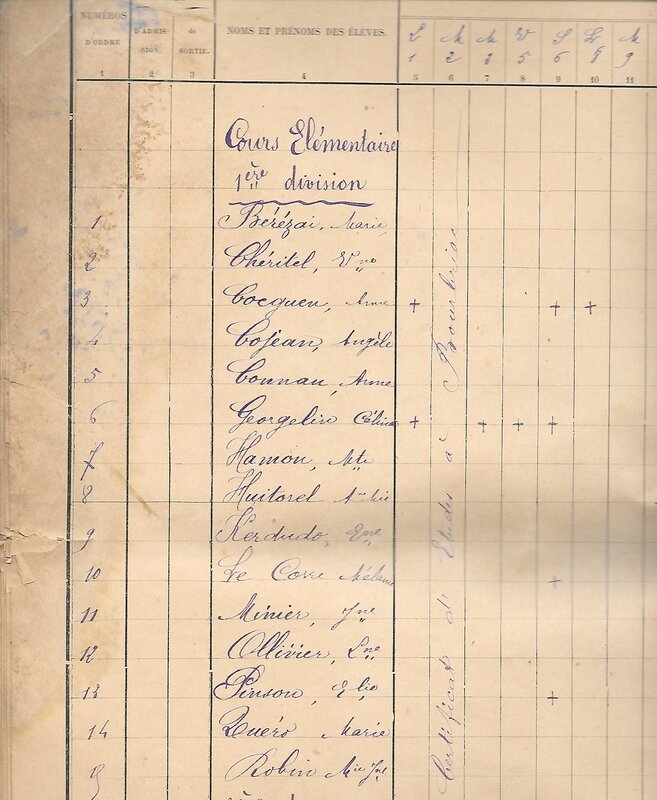 NUMÉROS
D'ORDRE D'ADMIS-SION. de SORTIE. NOMS ET PRÉNOMS DES ÉLÈVES. L M M V S L M
1 2 3 5 6 8 9
1 2 3 4 5 6 7 8 9 10 11
Cours Elémentaire
1ère division
1 Bérézai, Marie
2 Chéritel, Yne
3 Cocguen, Anne + + +
4 Cojean, Angèle
5 Connan, Anne
6 Georgelin Célina + + + +
7 Hamon, Mte
8 Huitorel A Mie
9 Kerdudo, Ene
10 Le Corre Mélanie +
11 Minier, Jne
12 Ollivier, Lne
13 Pinson, +
14 Quéro Marie
15 Robin Mie Jne
Certificat d'Etudes à Bourbriac